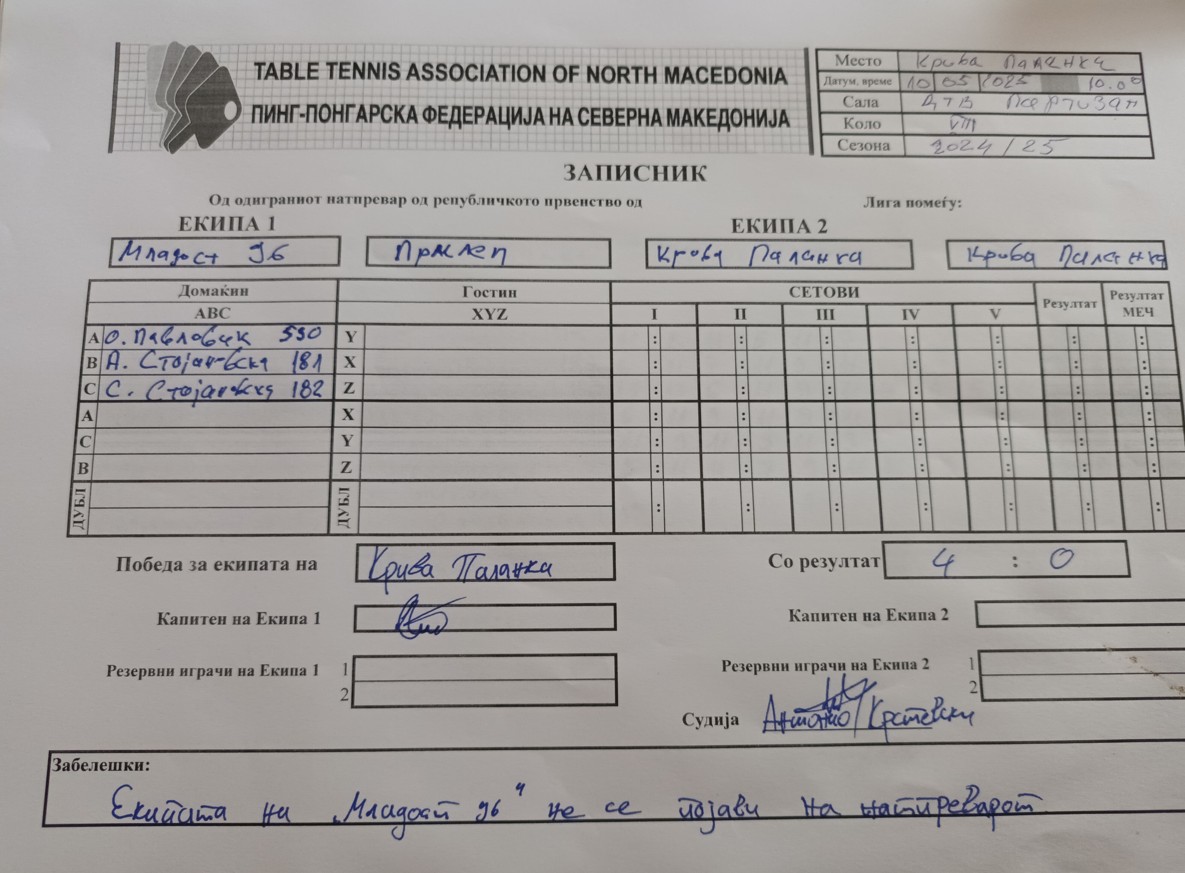 TABLE TENNIS ASSOCIATION OF NORTH MACEDONIA
ПИНГ-ПОНГАРСКА ФЕДЕРАЦИЈА НА СЕВЕРНА МАКЕДОНИЈА
Место Крива Паланка
Датум, време 10 05 2025 10.00
Сала ДТВ Партизан
Коло VIII
Сезона 2024/25
ЗАПИСНИК
Од одиграниот натпревар од републичкото првенство од Лига помеѓу:
ЕКИПА 1 ЕКИПА 2
Младост 96 Прилеп Крива Паланка Крива Паланка
Домаќин Гостин СЕТОВИ Резултат Резултат МЕЧ
ABC XYZ I II III IV V
A О. Павловиќ 530 Y : : : : : : :
B А. Стојановска 181 X : : : : : : :
C С. Стојановска 182 Z : : : : : : :
A X : : : : : : :
C Y : : : : : : :
B Z : : : : : : :
ДУБЛ ДУБЛ : : : : : : :
Победа за екипата на Крива Паланка Со резултат 4 : 0
Капитен на Екипа 1 Капитен на Екипа 2
Резервни играчи на Екипа 1 1 Резервни играчи на Екипа 2 1
2 2
Судија Антонио Крстевски
Забелешки:
Екипата на „Младост 96" не се појави на натпреварот